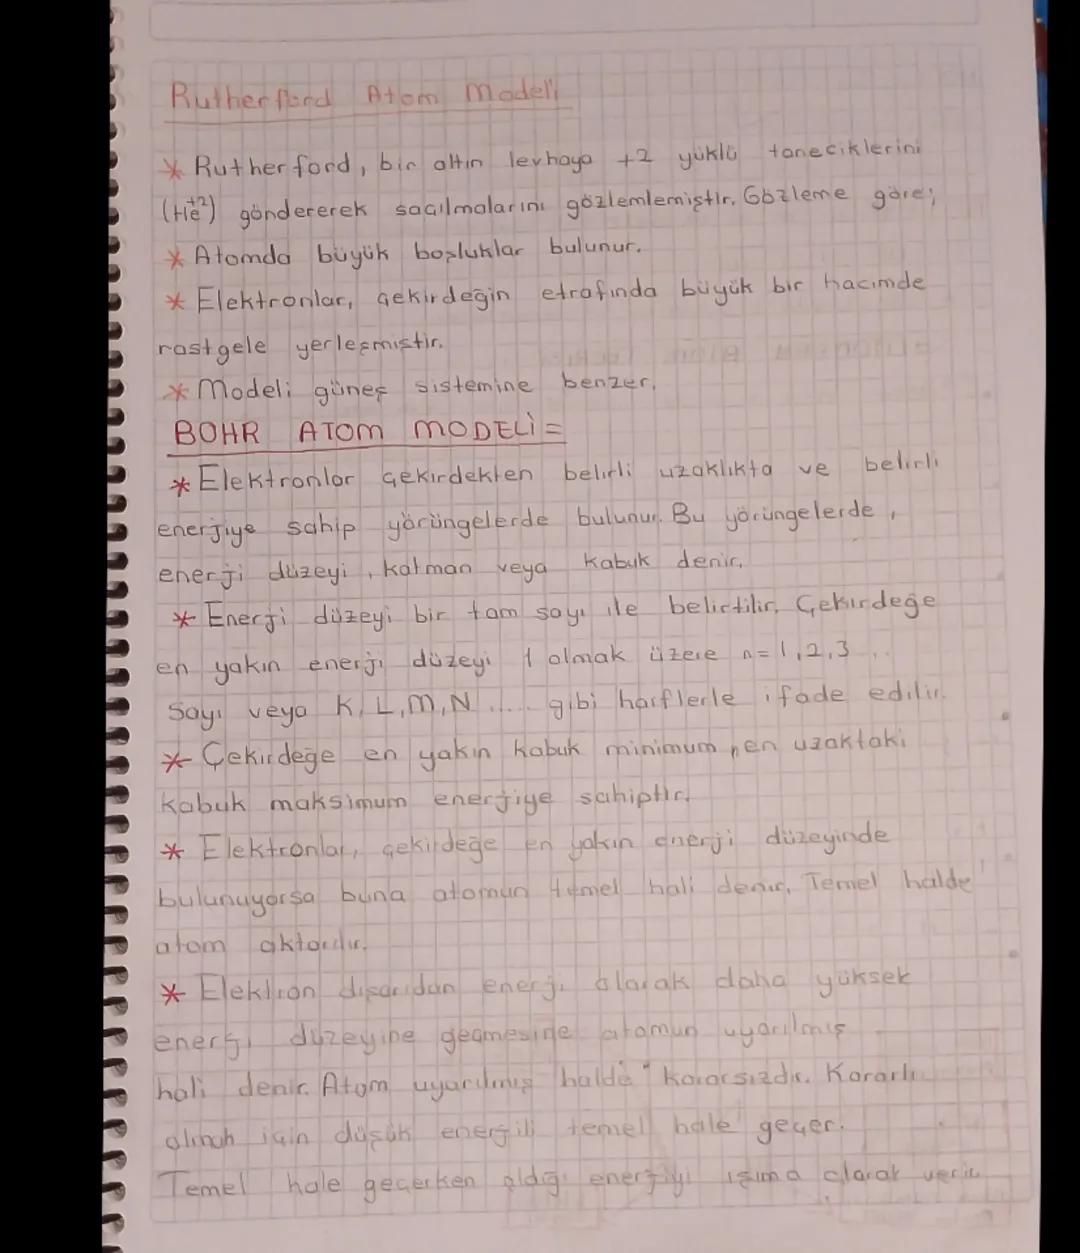 Rutherford Atom Modeli
* Rutherford, bir altın levhaya +2 yüklü taneciklerini
(He⁺²) göndererek saçılmalarını gözlemlemiştir. Gözleme göre;
* Atomda büyük boşluklar bulunur.
* Elektronlar, çekirdeğin etrafında büyük bir hacimde
rastgele yerleşmiştir.
* Modeli güneş sistemine benzer.
BOHR ATOM MODELİ =
* Elektronlar çekirdekten belirli uzaklıkta ve belirli
enerjiye sahip yörüngelerde bulunur. Bu yörüngelerde,
enerji düzeyi, katman veya kabuk denir.
* Enerji düzeyi bir tam sayı ile belirtilir. Çekirdeğe
en yakın enerji düzeyi 1 olmak üzere n=1,2,3 ...
sayı veya K, L, M, N ..... gibi harflerle ifade edilir.
* Çekirdeğe en yakın kabuk minimum, en uzaktaki
kabuk maksimum enerjiye sahiptir.
* Elektronlar, çekirdeğe en yakın enerji düzeyinde
bulunuyorsa buna atomun temel hali denir. Temel halde
atom
* Elektron dışarıdan enerji alarak daha yüksek
enerji düzeyine geçmesine atomun uyarılmış
hali denir. Atom uyarılmış halde kararsızdır. Kararlı
olmak için düşük enerjili temel hale geçer.
Temel hale geçerken aldığı enerjiyi ışıma olarak verir